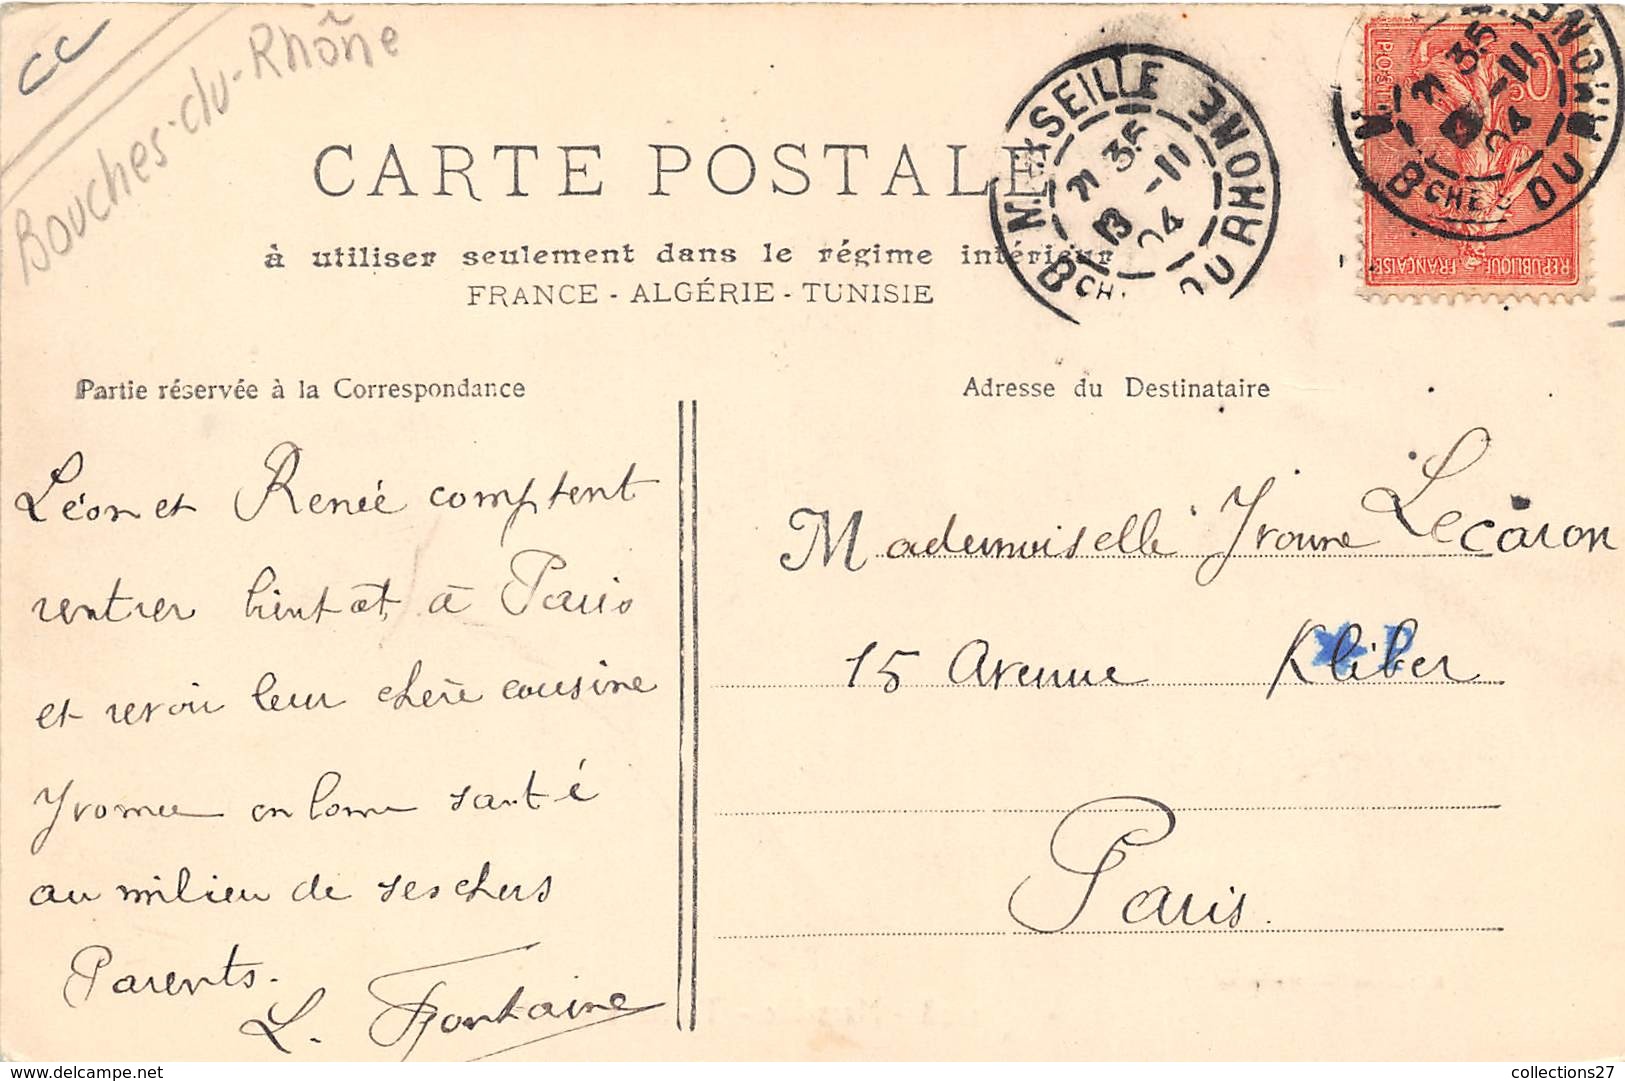 CC
Bouches-du-Rhône
CARTE POSTALE
à utiliser seulement dans le régime intérieur
FRANCE - ALGÉRIE - TUNISIE
MARSEILLE
21 35
13 -11
04
BCH. DU RHONE
POST
50c
RÉPUBLIQUE FRANÇAISE
21 35
13 -11
04
BCHES DU RHONE
Partie réservée à la Correspondance
Adresse du Destinataire
Léon et Renée comptent
rentrer bientôt à Paris
et revoir leur chère cousine
Yvonne en bonne santé
au milieu de ses chers
Parents.
L. Fontaine
Mademoiselle Yvonne Lecaron
15 Avenue Kléber
Paris.
http://www.delcampe.net
collections27